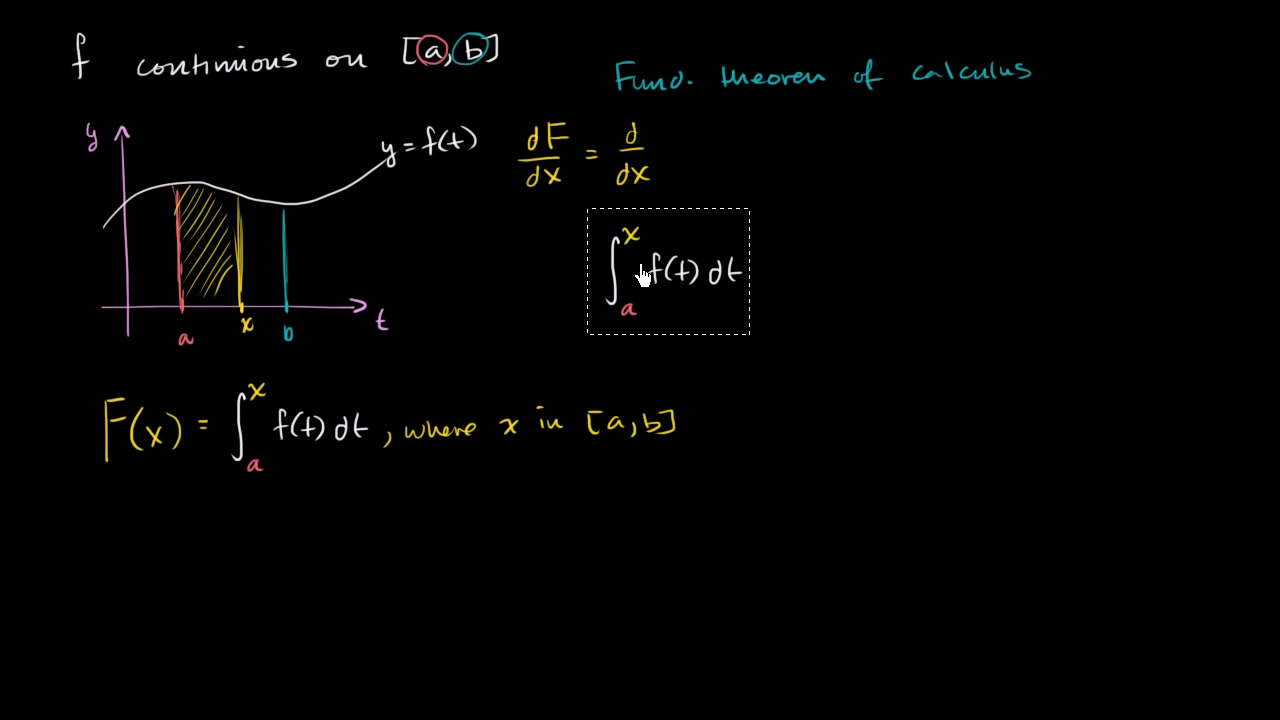 f continuous on [a, b]
Fund. theorem of calculus
y
y = f(t)
dF/dx = d/dx
∫ₐˣ f(t) dt
a
x
b
t
F(x) = ∫ₐˣ f(t) dt, where x in [a, b]